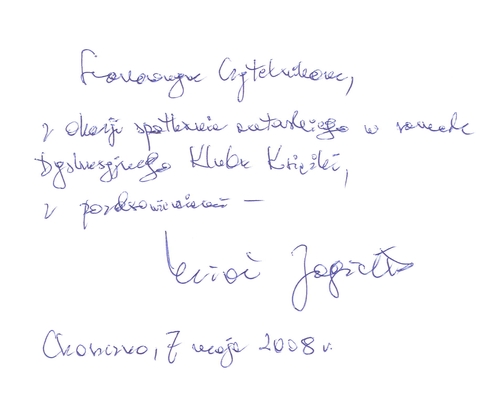 Szanownym Czytelnikom,
z okazji spotkania autorskiego w ramach
Dyskusyjnego Klubu Książki,
z pozdrowieniami —
Jagiełło
7 maja 2008 r.